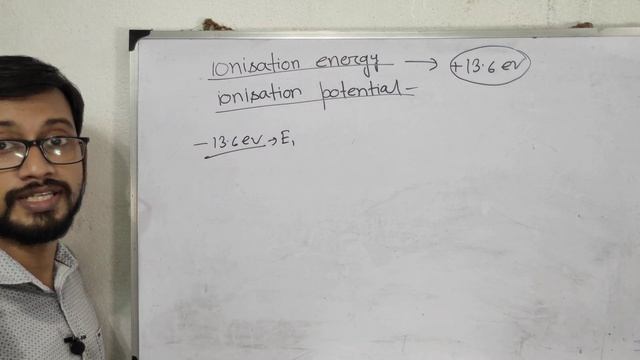 ionisation energy → +13.6 ev
ionisation potential -
-13.6 ev → E₁